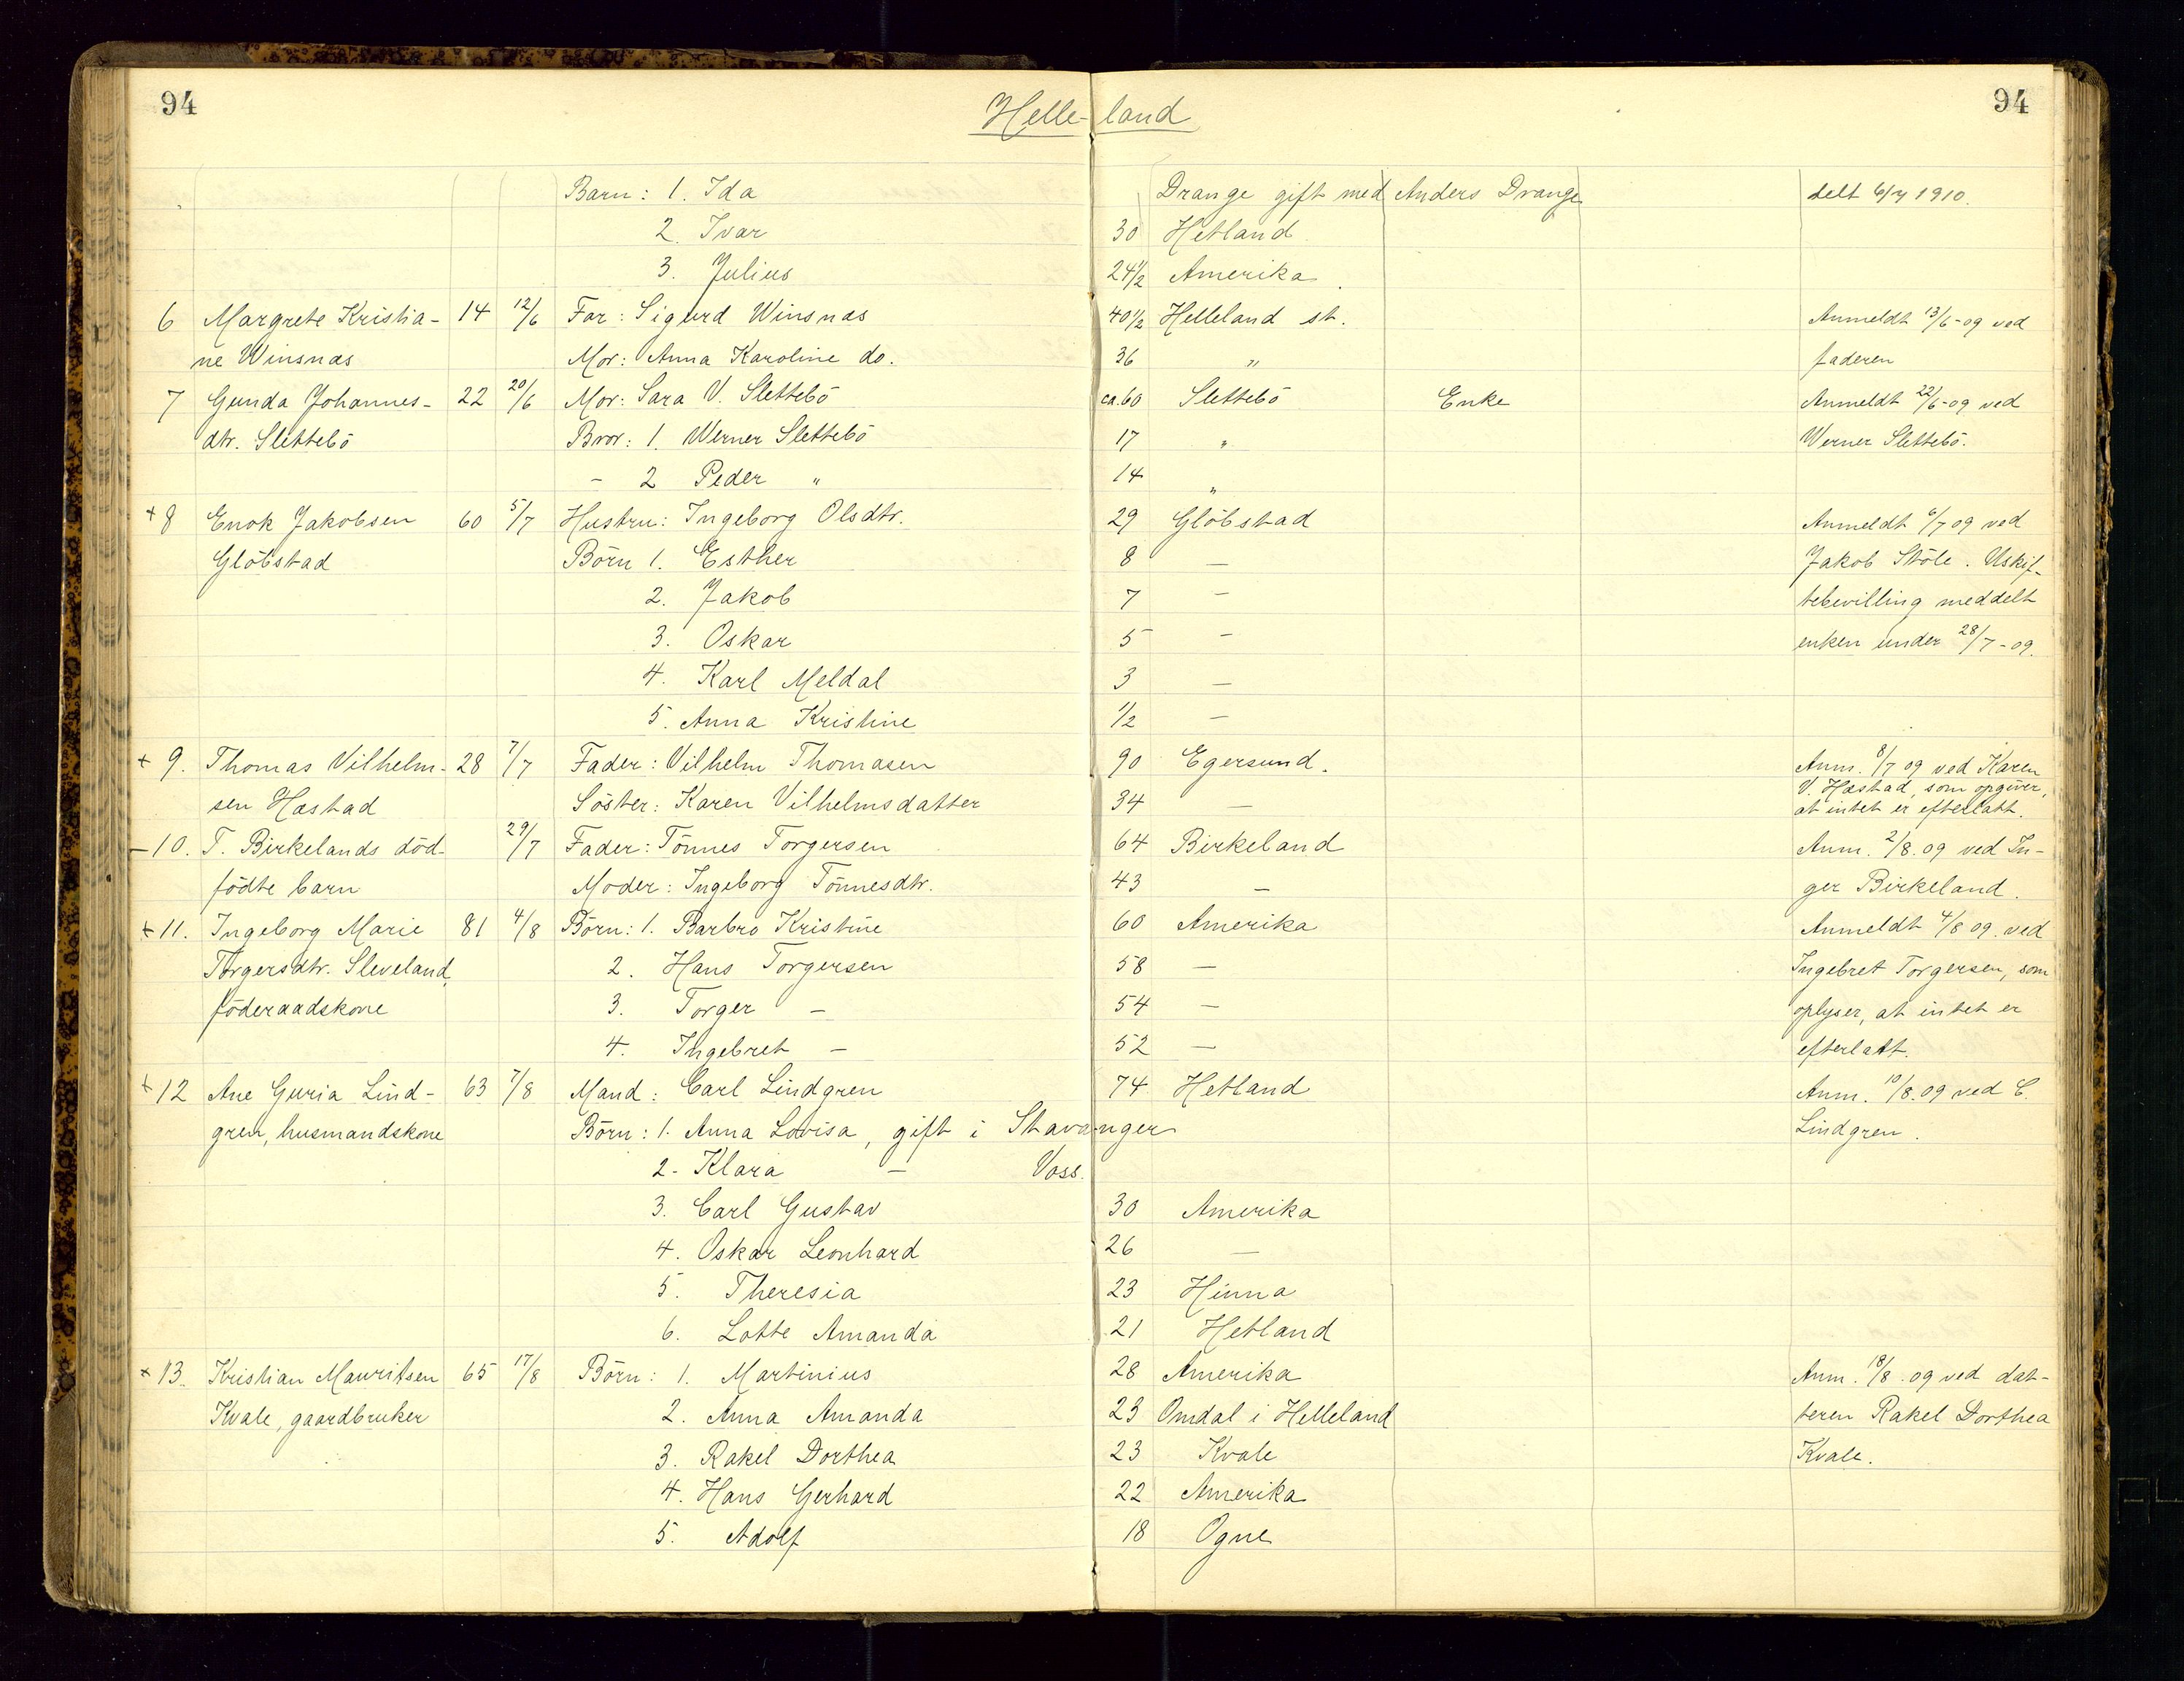 94 Helle- land 94
Barn: 1. Ida Drange gift med Anders Drange delt 6/7 1910.
2. Ivar 30 Hetland
3. Julius 24 1/2 Amerika
6 Margrete Kristia- 14 12/6 Far: Sigurd Winsnæs 40 1/2 Helleland st. Anmeldt 13/6-09 ved
ne Winsnæs Mor: Anna Karoline do. 36 " faderen
7 Gunda Johannes- 22 20/6 Mor: Sara V. Slettebö ca. 60 Slettebö Enke Anmeldt 22/6-09 ved
dtr. Slettebö Bror: 1. Werner Slettebö 17 " Werner Slettebö.
- 2 Peder " 14 "
+ 8 Enok Jakobsen 60 5/7 Hustru: Ingeborg Olsdtr. 29 Glöbstad Anmeldt 6/7 09 ved
Glöbstad Börn 1. Esther 8 — Jakob Stöle. Uskif-
2. Jakob 7 — tebevilling meddelt
3. Oskar 5 — enken under 28/7-09.
4. Karl Meldal 3 —
5. Anna Kristine 1/2 —
+ 9. Thomas Vilhelm- 28 7/7 Fader: Vilhelm Thomasen 90 Egersund. Anm. 8/7 09 ved Karen
sen Hæstad Söster: Karen Vilhelmsdatter 34 — V. Hæstad, som opgiver,
at intet er efterlatt.
- 10. T. Birkelands död- 29/7 Fader: Tönnes Torgersen 64 Birkeland Anm. 2/8.09 ved In-
födte barn Moder: Ingeborg Tönnesdtr. 43 — ger Birkeland.
+ 11. Ingeborg Marie 81 4/8 Börn: 1. Barbro Kristine 60 Amerika Anmeldt 4/8 09. ved
Torgersdtr. Sleveland, 2. Hans Torgersen 58 — Ingebret Torgersen, som
föderaadskone 3. Torger — 54 — oplyser, at intet er
4. Ingebret — 52 — efterlatt.
+ 12 Ane Guria Lind- 63 7/8 Mand: Carl Lindgren 74 Hetland Anm. 10/8.09 ved C.
gren, husmandskone Börn: 1. Anna Lovisa, gift i Stavanger Lindgren.
2. Klara — Voss.
3. Carl Gustav 30 Amerika
4. Oskar Leonhard 26 —
5. Theresia 23 Hinna
6. Lotte Amanda 21 Hetland
+ 13. Kristian Mauritsen 65 17/8 Börn: 1. Martinius 28 Amerika Anm. 18/8.09 ved dat-
Kvale, gaardbruker 2. Anna Amanda 23 Omdal i Helleland teren Rakel Dorthea
3. Rakel Dorthea 23 Kvale Kvale.
4. Hans Gerhard 22 Amerika
5. Adolf 18 Ogne